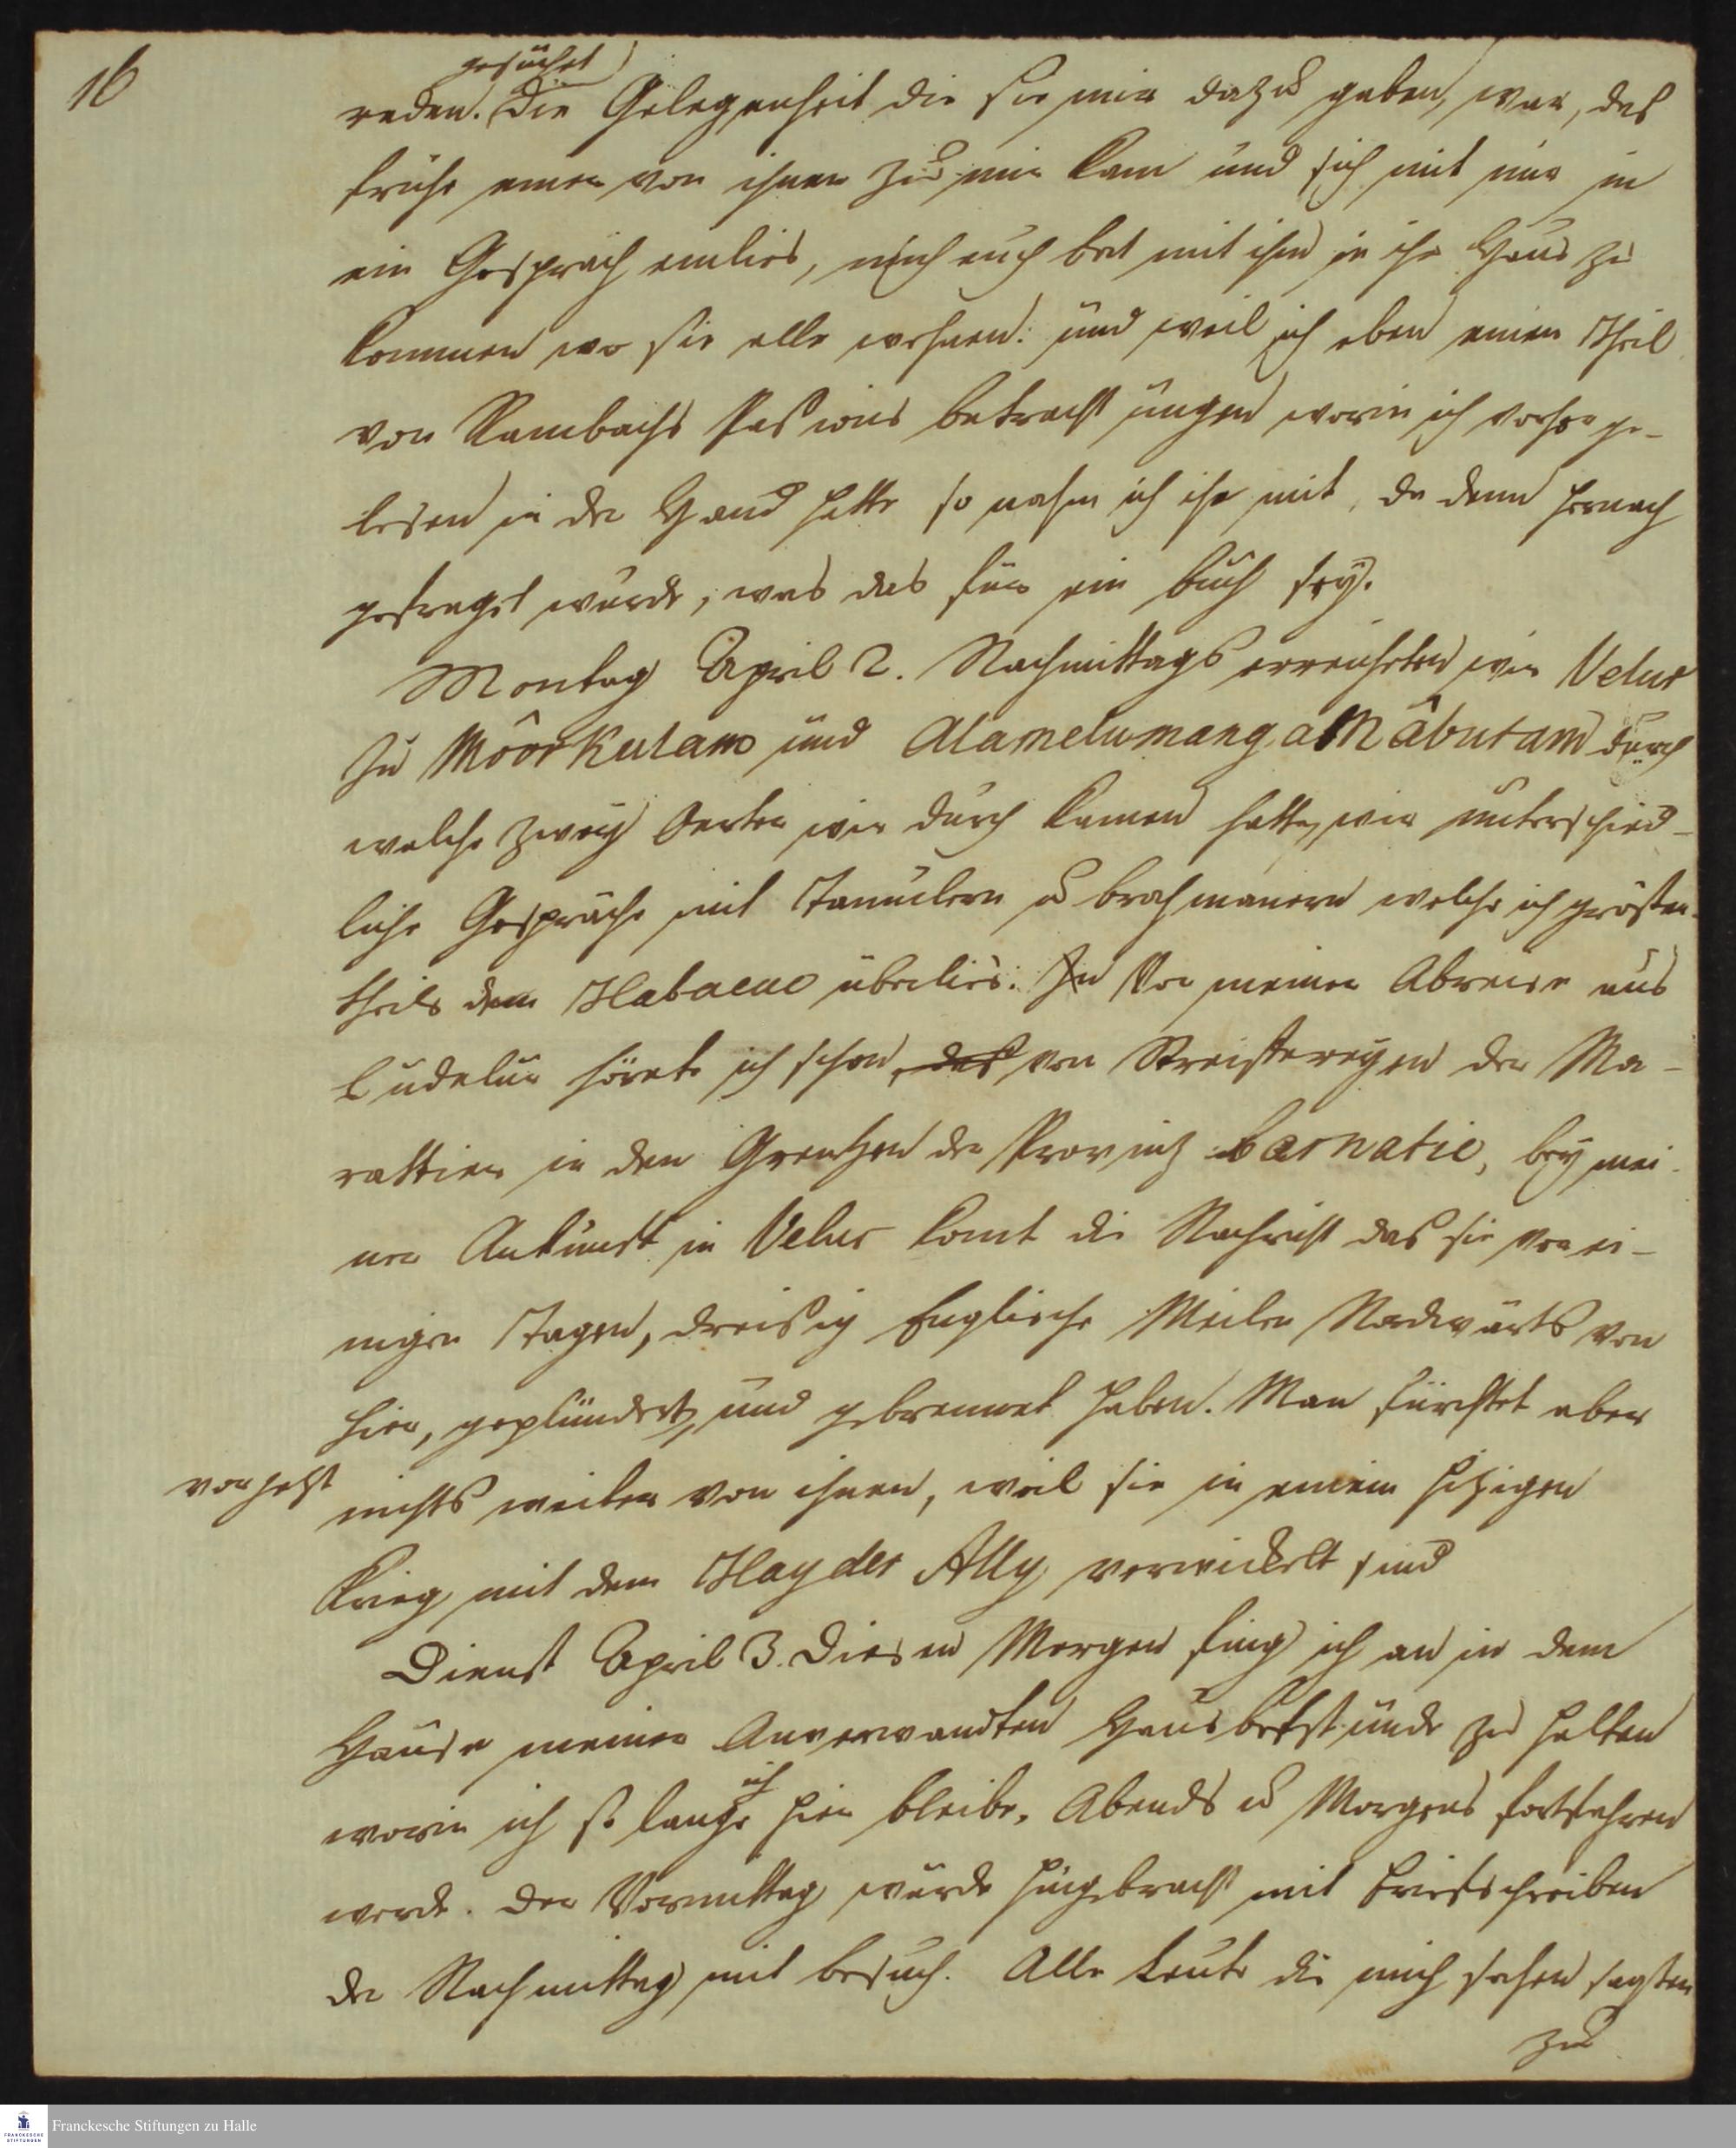 16
gesucht
reden. Die Gelegenheit die sie mir dazu gaben, war, daß
frühe einer von ihnen zu mir kam und sich mit mir in
ein Gespräch einlies, mich auch bat mit ihm in ihr Haus zu
kommen wo sie alle wohnen: und weil ich eben einen Theil
von Rambachs Passions betrachtungen worin ich vorher ge-
lesen in der Hand hatte so nahm ich ihn mit, da denn hernach
gefraget wurde, was das für ein buch sey.
Montag April 2. Nachmittags erreichten wir Velur
zu Môôrkulam und Alamelumanga Mâburam durch
welche zwey Oerter wir durch kamen hatte wir unterschied-
liche Gespräche mit Tamulern u brachmanern welche ich grösten-
theils dem Habacuc überlies. Vor meiner Abreise aus
Cudelur hörete ich schon, daß von Streiffereyen der Ma-
rattier in den Grentzen der Provinz Carnatic, bey mei-
ner Ankunft in Velur komt die Nachricht das sie vor ei-
nigen Tagen, dreisig Englische Meilen Nordwärts von
hier, geplündert, und gebrennet haben. Man fürchtet aber
vor jetzt
nichts weiter von ihnen, weil sie in einem hizigen
Krieg mit dem Hayder Ally verwickelt sind
Dienst April 3. Diesen Morgen fing ich an in dem
Hause meiner Anverwandten Hausbetstunde zu halten
ich
worin ich so lange hier bleibe, Abends u Morgens fortfahren
werde. Der Vormittag wurde hingebracht mit briefschreiben
der Nachmittag mit besuch. Alle Leute die mich sahen sagten
zu
Franckesche Stiftungen zu Halle
FRANCKESCHE
STIFTUNGEN